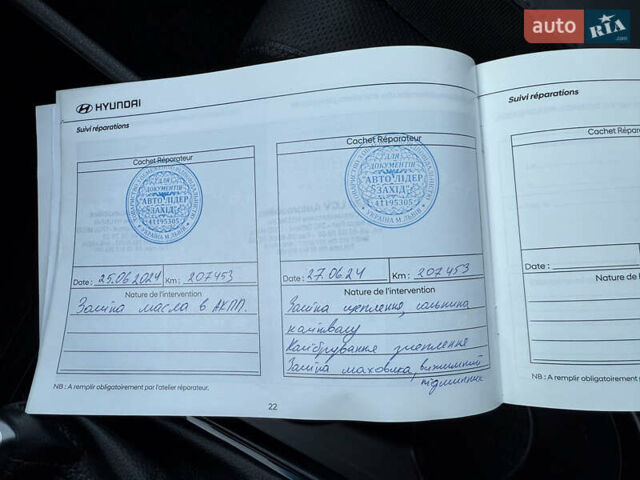 auto RIA .com
HYUNDAI
Suivi réparations
Cachet Réparateur
ДЛЯ
ДОКУМЕНТІВ
АВТО ЛІДЕР
ЗАХІД
41195305
УКРАЇНА М.ЛЬВІВ
Date : 25.06.2024 Km : 207453
Nature de l'intervention
Заміна масла в АКПП.
NB : A remplir obligatoirement par l'atelier réparateur.
Cachet Réparateur
ДЛЯ
ДОКУМЕНТІВ
АВТО ЛІДЕР
ЗАХІД
41195305
УКРАЇНА М.ЛЬВІВ
Date : 27.06.24 Km : 207453
Nature de l'intervention
Заміна щеплення, сальника
калінвалу
Калібрування зчеплення
Заміна маховика, вижимний
підшипник
22
Suivi réparations
Cachet Répara
Date :
Nature de l'in
NB : A remplir obligatoirement par l'ateli